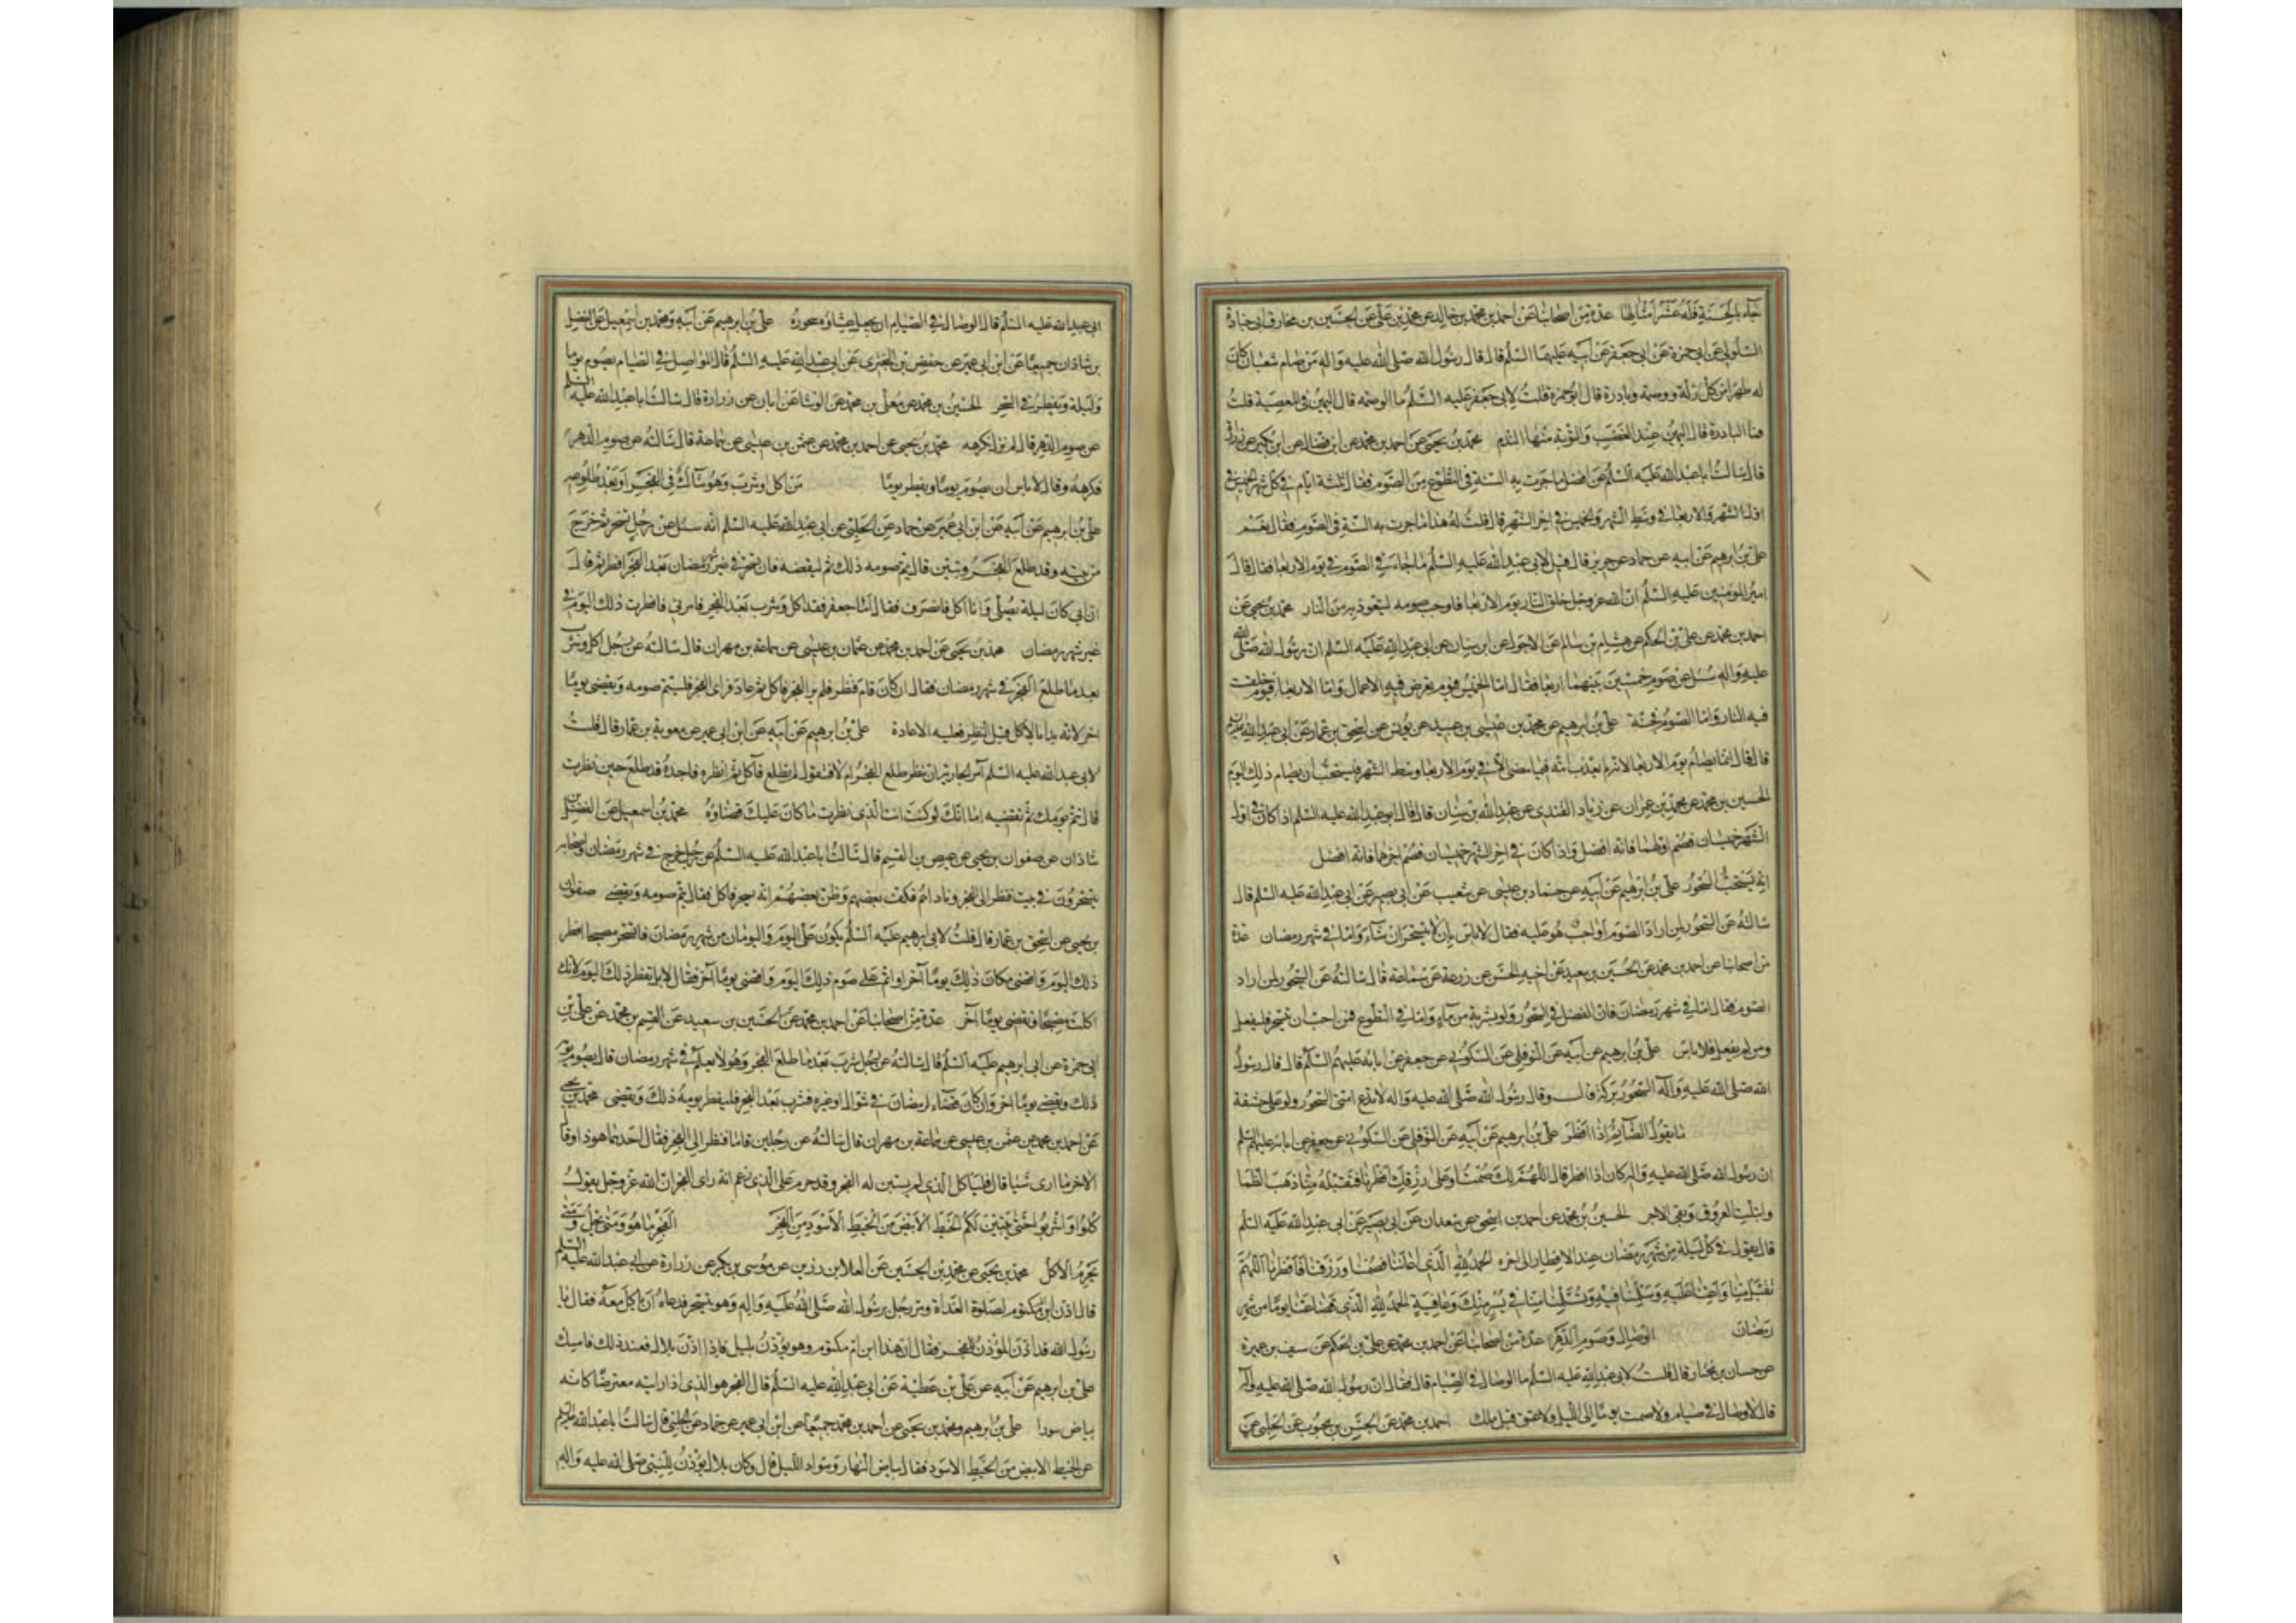 جاء بالحسنة فله عشر امثالها عدة من اصحابنا عن احمد بن محمد بن خالد عن محمد بن علي عن الحسين بن مخارق ابي جنادة
السلولي عن ابي حمزة عن ابي جعفر عن ابيه عليهما السلم قال قال رسول الله صلى الله عليه واله من صام شعبان كان
له طهرا من كل زلة ووصمة وبادرة قال ابو حمزة قلت لابي جعفر عليه السلم ما الوصمة قال اليمين في المعصية قلت
فما البادرة قال اليمين عند الغضب والتوبة منها الندم محمد بن يحيى عن احمد بن محمد عن ابن فضال عن ابن بكير عن زرارة
قال سالت ابا عبد الله عليه السلم عن افضل ما جرت به السنة في التطوع من الصوم فقال ثلثة ايام في كل شهر الخميس في
اول الشهر والاربعا في وسط الشهر والخميس في اخر الشهر قال قلت له هذا ما جرت به السنة في الصوم فقال نعم
علي بن ابرهيم عن ابيه عن حماد عن حريز قال قيل لابي عبد الله عليه السلم ما جاء في الصوم في يوم الاربعا فقال قال
امير المؤمنين عليه السلم ان الله عز وجل خلق النار يوم الاربعا فاوجب صومه ليتعوذ به من النار محمد بن يحيى عن
احمد بن محمد عن علي بن الحكم عن هشام بن سالم عن الاحول عن ابن سنان عن ابي عبد الله عليه السلم ان رسول الله صلى الله
عليه واله سئل عن صوم خميسين بينهما اربعا فقال اما الخميس فيوم تعرض فيه الاعمال واما الاربعا فيوم خلقت
فيه النار واما الصوم فجنة علي بن ابرهيم عن محمد بن عيسى بن عبيد عن يونس عن اسحق بن عمار عن ابي عبد الله عليه السلم
قال قال انما يصام يوم الاربعا لانه لم يعذب امة فيما مضى الا في يوم الاربعا وسط الشهر فيستحب ان يصام ذلك اليوم
الحسين بن محمد عن محمد بن عمران عن زياد القندي عن عبد الله بن سنان قال قال ابو عبد الله عليه السلم اذا كان في اول
الشهر خميسان فصم اولهما فانه افضل واذا كان في اخر الشهر خميسان فصم اخرهما فانه افضل
انه يستحب السحور علي بن ابرهيم عن ابيه عن حماد بن عيسى عن شعيب عن ابي بصير عن ابي عبد الله عليه السلم قال
سالته عن السحور لمن اراد الصوم اواجب هو عليه فقال لا باس بان لا يتسحر ان شاء واما في شهر رمضان عدة
من اصحابنا عن احمد بن محمد عن الحسين بن سعيد عن اخيه الحسن عن زرعة عن سماعة قال سالته عن السحور لمن اراد
الصوم فقال اما في شهر رمضان فان الفضل في السحور ولو بشربة من ماء واما في التطوع فمن احب ان يتسحر فليفعل
ومن لم يفعل فلا باس علي بن ابرهيم عن ابيه عن النوفلي عن السكوني عن جعفر عن ابائه عليهم السلم قال قال رسول
الله صلى الله عليه واله السحور بركة قال وقال رسول الله صلى الله عليه واله لا تدع امتي السحور ولو على حشفة
ما يقول الصائم اذا افطر علي بن ابرهيم عن ابيه عن النوفلي عن السكوني عن جعفر عن ابائه عليهم السلم
ان رسول الله صلى الله عليه واله كان اذا افطر قال اللهم لك صمنا وعلى رزقك افطرنا فتقبله منا ذهب الظما
وابتلت العروق وبقي الاجر الحسين بن محمد عن احمد بن اسحق عن سعدان عن ابي بصير عن ابي عبد الله عليه السلم
قال يقول في كل ليلة من شهر رمضان عند الافطار الى اخره الحمد لله الذي اعاننا فصمنا ورزقنا فافطرنا اللهم
تقبل منا واعنا عليه وسلمنا فيه وتسلمه منا في يسر منك وعافية الحمد لله الذي قضى عنا يوما من شهر
رمضان الوصال وصوم الدهر عدة من اصحابنا عن احمد بن محمد عن علي بن الحكم عن سيف بن عميرة
عن حسان بن مختار قال قلت لابي عبد الله عليه السلم ما الوصال في الصيام قال فقال ان رسول الله صلى الله عليه واله
قال لا وصال في صيام ولا صمت يوما الى الليل ولا عتق قبل ملك احمد بن محمد عن الحسن بن محبوب عن الحلبي عن
ابي عبد الله عليه السلم قال الوصال في الصيام ان يجعل عشاوه سحوره علي بن ابرهيم عن ابيه ومحمد بن اسمعيل عن الفضل
بن شاذان جميعا عن ابن ابي عمير عن حفص بن البختري عن ابي عبد الله عليه السلم قال المواصل في الصيام يصوم يوما
وليلة ويفطر في السحر الحسين بن محمد عن معلى بن محمد عن الوشا عن ابان عن زرارة قال سالت ابا عبد الله عليه السلم
عن صوم الدهر قال لم نزل نكرهه محمد بن يحيى عن احمد بن محمد عن عثمن بن عيسى عن سماعة قال سالته عن صوم الدهر
فكرهه وقال لا باس ان يصوم يوما ويفطر يوما من اكل او شرب وهو شاك في الفجر او بعد طلوعه
علي بن ابرهيم عن ابيه عن ابن ابي عمير عن حماد عن الحلبي عن ابي عبد الله عليه السلم انه سئل عن رجل تسحر ثم خرج
من بيته وقد طلع الفجر وتبين قال يتم صومه ذلك ثم ليقضه فان تسحر في غير شهر رمضان بعد الفجر افطر ثم قال
ان ابي كان ليلة يصلي وانا اكل فانصرف فقال اما جعفر فقد اكل وشرب بعد الفجر فامرني فافطرت ذلك اليوم في
غير شهر رمضان محمد بن يحيى عن احمد بن محمد عن عثمان بن عيسى عن سماعة بن مهران قال سالته عن رجل اكل وشرب
بعد ما طلع الفجر في شهر رمضان فقال ان كان قام فنظر فلم ير الفجر فاكل ثم عاد فراى الفجر فليتم صومه ويقضي يوما
اخر لانه بدا بالاكل قبل النظر فعليه الاعادة علي بن ابرهيم عن ابيه عن ابن ابي عمير عن معوية بن عمار قال قلت
لابي عبد الله عليه السلم آمر الجارية ان تنظر طلع الفجر ام لا فتقول لم يطلع فآكل ثم انظره فاجده قد طلع حين نظرت
قال تتم يومك ثم تقضيه اما انك لو كنت انت الذي نظرت ما كان عليك قضاؤه محمد بن اسمعيل عن الفضل بن
شاذان عن صفوان بن يحيى عن عيص بن القسم قال سالت ابا عبد الله عليه السلم عن رجل خرج في شهر رمضان واصحابه
يتسحرون في بيت فنظر الى الفجر وناداهم فكف بعضهم وظن بعضهم انه يسخر فاكل فقال يتم صومه ويقضي صفوان
بن يحيى عن اسحق بن عمار قال قلت لابي ابرهيم عليه السلم يكون علي اليوم واليومان من شهر رمضان فاتسحر مصبحا افطر
ذلك اليوم واقضي مكان ذلك يوما آخر او اتم على صوم ذلك اليوم واقضي يوما آخر فقال لا بل تفطر ذلك اليوم لانك
اكلت مصبحا وتقضي يوما آخر عدة من اصحابنا عن احمد بن محمد عن الحسين بن سعيد عن القسم بن محمد عن علي بن
ابي حمزة عن ابي ابرهيم عليه السلم قال سالته عن رجل شرب بعد ما طلع الفجر وهو لا يعلم في شهر رمضان قال يصوم يومه
ذلك ويقضي يوما اخر وان كان قضاء لرمضان في شوال او غيره فشرب بعد الفجر فليفطر يومه ذلك ويقضي محمد بن يحيى
عن احمد بن محمد عن عثمن بن عيسى عن سماعة بن مهران قال سالته عن رجلين قاما فنظرا الى الفجر فقال احدهما هو ذا وقال
الاخر ما ارى شيئا قال فلياكل الذي لم يستبن له الفجر وقد حرم على الذي زعم انه راى الفجر ان الله عز وجل يقول
كلوا واشربوا حتى يتبين لكم الخيط الابيض من الخيط الاسود من الفجر الفجر ما هو ومتى يحل ومتى
يحرم الاكل محمد بن يحيى عن محمد بن الحسين عن العلا بن رزين عن موسى بن بكر عن زرارة عن ابي عبد الله عليه السلم
قال اذن ابن مكتوم لصلوة الغداة ومر رجل برسول الله صلى الله عليه واله وهو يتسحر فدعاه ان ياكل معه فقال يا
رسول الله قد اذن المؤذن للفجر فقال ان هذا ابن ام مكتوم وهو يؤذن بليل فاذا اذن بلال فعند ذلك فامسك
علي بن ابرهيم عن ابيه عن علي بن عطية عن ابي عبد الله عليه السلم قال الفجر هو الذي اذا رايته معترضا كانه
بياض سورا علي بن ابرهيم ومحمد بن يحيى عن احمد بن محمد جميعا عن ابن ابي عمير عن حماد عن الحلبي قال سالت ابا عبد الله عليه السلم
عن الخيط الابيض من الخيط الاسود فقال بياض النهار وسواد الليل قال وكان بلال يؤذن للنبي صلى الله عليه واله